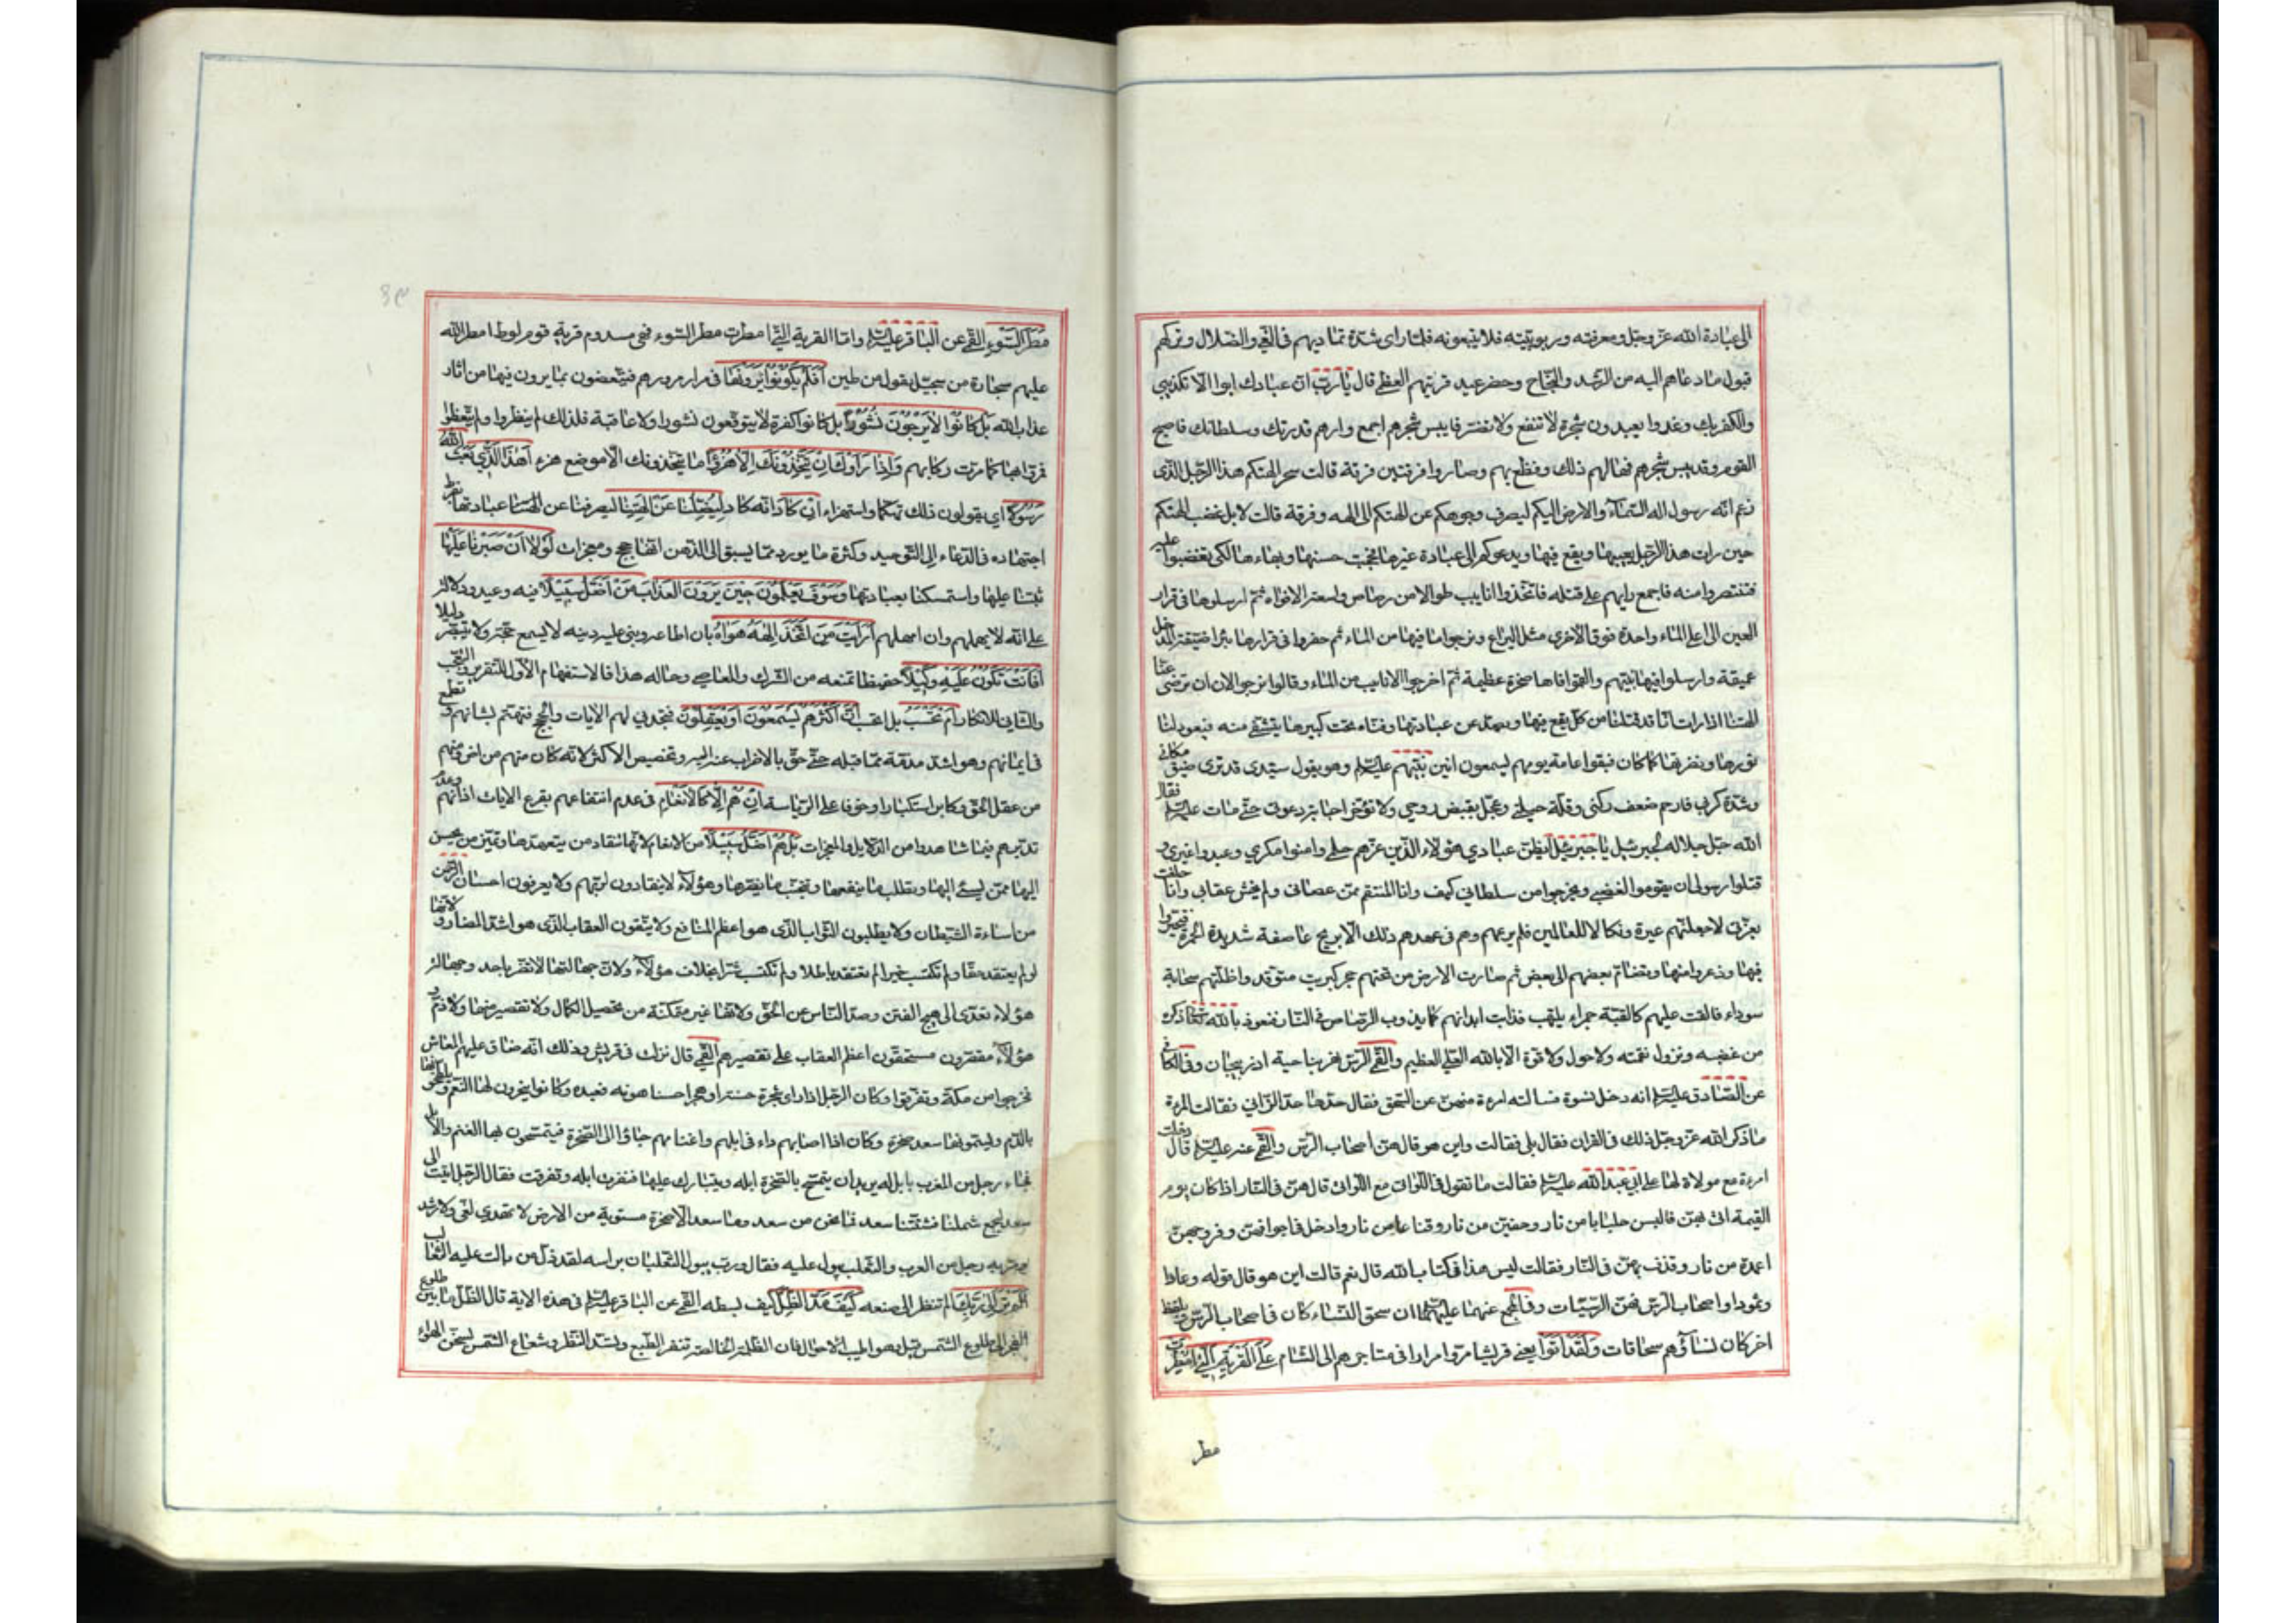 الى عبادة الله عز وجل ومعرفته وربوبيته فلا يتبعونه فلما راى شدة تماديهم فى الغى والضلال وتركهم
قبول ما دعاهم اليه من الرشد والنجاح وحضر عيد قريتهم العظمى قال يا رب ان عبادك ابوا الا تكذيبى
والكفر بك وغدوا يعبدون شجرة لا تنفع ولا تضر فايبس شجرهم اجمع وارهم قدرتك وسلطانك فاصبح
القوم وقد يبس شجرهم فهالهم ذلك وفظع بهم وصاروا فرقتين فرقة قالت سحر الهتكم هذا الرجل الذى
زعم انه رسول اله السماء والارض اليكم ليصرف وجوهكم عن الهتكم الى الهه وفرقة قالت لا بل غضب الهتكم
حين رات هذا الرجل يعيبها ويقع فيها ويدعوكم الى عبادة غيرها فحجبت حسنها وبهاءها لكى تغضبوا عليه
فتنتصروا منه فاجمع رايهم على قتله فاتخذوا انابيب طوالا من رصاص واسعة الافواه ثم ارسلوها فى قرار
العين الى اعلى الماء واحدة فوق الاخرى مثل البرابخ ونزحوا ما فيها من الماء ثم حفروا فى قرارها بئرا ضيقة المدخل
عميقة وارسلوا فيها نبيهم والقموا فاها صخرة عظيمة ثم اخرجوا الانابيب من الماء وقالوا نرجو الان ان ترضى عنا
الهتنا اذا رات انا قد قتلنا من كان يقع فيها ويصد عن عبادتها ودفناه تحت كبيرها يتشفى منه فيعود لنا
نورها ونضرتها كما كان فبقوا عامة يومهم يسمعون انين نبيهم عليه السلام وهو يقول سيدى قد ترى ضيق مكانى
وشدة كربى فارحم ضعف ركنى وقلة حيلتى وعجل بقبض روحى ولا تؤخر اجابة دعوتى حتى مات عليه السلام فقال
الله جل جلاله لجبرئيل يا جبرئيل ايظن عبادى هؤلاء الذين غرهم حلمى وامنوا مكرى وعبدوا غيرى و
قتلوا رسولى ان يقوموا لغضبى ويخرجوا من سلطانى كيف وانا المنتقم ممن عصانى ولم يخش عقابى وانا حلفت
بعزتى لاجعلنهم عبرة ونكالا للعالمين فلم يرعهم وهم فى عيدهم ذلك الا بريح عاصفة شديدة الحمرة فتحيروا
فيها وذعروا منها وتضام بعضهم الى بعض ثم صارت الارض من تحتهم حجر كبريت متوقد واظلتهم سحابة
سوداء فالقت عليهم كالقبة جمراء يلتهب فذابت ابدانهم كما يذوب الرصاص فى النار فنعوذ بالله تعالى ذكره
من غضبه ونزول نقمته ولا حول ولا قوة الا بالله العلى العظيم والقمى الرس نهر بناحية اذربيجان وفى الكافى
عن الصادق عليه السلام انه دخل نسوة فسالته امرءة منهن عن السحق فقال حدها حد الزانى فقالت المرءة
ما ذكر الله عز وجل ذلك فى القران فقال بلى فقالت واين هو قال هن اصحاب الرس والقمى عنه عليه السلام قال دخلت
امرءة مع مولاة لها على ابى عبد الله عليه السلام فقالت ما تقول فى اللواتى مع اللواتى قال هن فى النار اذا كان يوم
القيمة اتى بهن فالبسن جلبابا من نار وخفين من نار وقناعا من نار وادخل فى اجوافهن وفروجهن
اعمدة من نار وقذف بهن فى النار فقالت ليس هذا فى كتاب الله قال نعم قالت اين هو قال قوله وعادا
وثمودا واصحاب الرس فهن الرسيات وفى المجمع عنهما عليهما السلام ان سحق النساء كان فى اصحاب الرس بلفظ
اخر كان نساؤهم سحاقات ولقد اتوا يعنى قريشا مروا مرارا فى متاجرهم الى الشام على القرية التى امطرت
مطر
مطر السوء القمى عن الباقر عليه السلام واما القرية التى امطرت مطر السوء فهى سدوم قرية قوم لوط امطر الله
عليهم حجارة من سجيل يقول من طين افلم يكونوا يرونها فى مرار مرورهم فيتعظون بما يرون فيها من اثار
عذاب الله بل كانوا لا يرجون نشورا بل كانوا كفرة لا يتوقعون نشورا ولا عاقبة فلذلك لم ينظروا ولم يتعظوا
فمروا بها كما مرت ركابهم واذا راوك ان يتخذونك الا هزوا ما يتخذونك الا موضع هزء اهذا الذى بعث الله
رسولا اى يقولون ذلك تهكما واستهزاء ان كاد انه كاد ليضلنا عن الهتنا ليصرفنا عن الهتنا عبادتها بفرط
اجتهاده فى الدعاء الى التوحيد وكثرة ما يورد مما يسبق الى الذهن انها حجج ومعجزات لولا ان صبرنا عليها
ثبتنا عليها واستمسكنا بعبادتها وسوف يعلمون حين يرون العذاب من اضل سبيلا فيه وعيد ودلالة
على انه لا يهملهم وان امهلهم ارايت من اتخذ الهه هواه بان اطاعه وبنى عليه دينه لا يسمع حجة ولا يتبصر دليلا
افانت تكون عليه وكيلا حفيظا تمنعه من الشرك والمعاصى وحاله هذا فالاستفهام الاول للتقرير والتعجيب
والثانى للانكار ام تحسب بل اتحسب ان اكثرهم يسمعون او يعقلون فتجدى لهم الايات والحجج فتهتم بشانهم وتطمع
فى ايمانهم وهو اشد مذمة مما قبله حتى حق بالاضراب عنه اليه وتخصيص الاكثر لانه كان منهم من امن ومنهم
من عقل الحق وكابر استكبارا وخوفا على الرياسة ان هم الا كالانعام فى عدم انتفاعهم بقرع الايات اذانهم وعدم
تدبرهم فيما شاهدوا من الدلايل والمعجزات بل هم اضل سبيلا من الانعام لانها تنقاد من يتعهدها وتميز من يحسن
اليها ممن يسىء اليها وتطلب ما ينفعها وتجتنب ما يضرها وهؤلاء لا ينقادون لربهم ولا يعرفون احسان الرحمن
من اساءة الشيطان ولا يطلبون الثواب الذى هو اعظم المنافع ولا يتقون العقاب الذى هو اشد المضار ولانها
لو لم يعتقد حقا ولم تكتسب خيرا لم تعتقد باطلا ولم تكتسب شرا بخلاف هؤلاء ولان جهالتها لا تضر باحد وجهالة
هؤلاء تؤدى الى هيج الفتن وصد الناس عن الحق ولانها غير متمكنة من تحصيل الكمال ولا تقصير منها ولا ذم و
هؤلاء مقصرون مستحقون اعظم العقاب على تقصيرهم القمى قال نزلت فى قريش وذلك انه ضاق عليهم المعاش
فخرجوا من مكة وتفرقوا وكان الرجل اذا راى شجرة حسنة او حجرا حسنا هويه فعبده وكانوا ينحرون لها النعم ويلطخونها
بالدم ويسمونها سعد صخرة وكان اذا اصابهم داء فى ابلهم واغنامهم جاؤا الى الصخرة فيتمسحون بها الغنم والابل
فجاء رجل من العرب بابل له يريد ان يتمسح بالصخرة ابله ويتبارك عليها فنفرت ابله وتفرقت فقال الرجل اتيت الى
سعد ليجمع شملنا فشتتنا سعد فما نحن من سعد وما سعد الا صخرة مستوية من الارض لا تهدى لغى ولا رشد
ومر به رجل من العرب والثعلب يبول عليه فقال ورب يبول الثعلبان براسه لقد ذل من بالت عليه الثعالب
الم تر الى ربك الم تنظر الى صنعه كيف مد الظل كيف بسطه القمى عن الباقر عليه السلام فى هذه الاية قال الظل ما بين طلوع
الفجر الى طلوع الشمس قيل وهو اطيب الاحوال فان الظلمة الخالصة تنفر الطبع وتسد النظر وشعاع الشمس يسخن الهواء